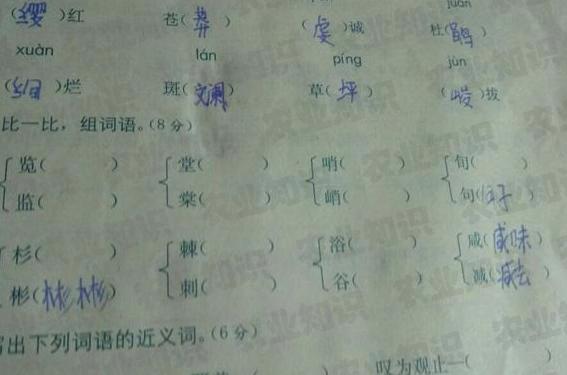 juān
(缨)红 苍(莽) (虔)诚 杜(鹃)
xuàn lán píng jùn
(绚)烂 斑(斓) 草(坪) (峻)拔
比一比，组词语。(8分)
览( ) 堂( ) 哨( ) 旬( )
监( ) 棠( ) 峭( ) 句(句子)
杉( ) 棘( ) 浴( ) 咸(咸味)
彬(彬彬) 刺( ) 谷( ) 减(减去)
写出下列词语的近义词。(6分)
( ) 叹为观止—( )
农业知识